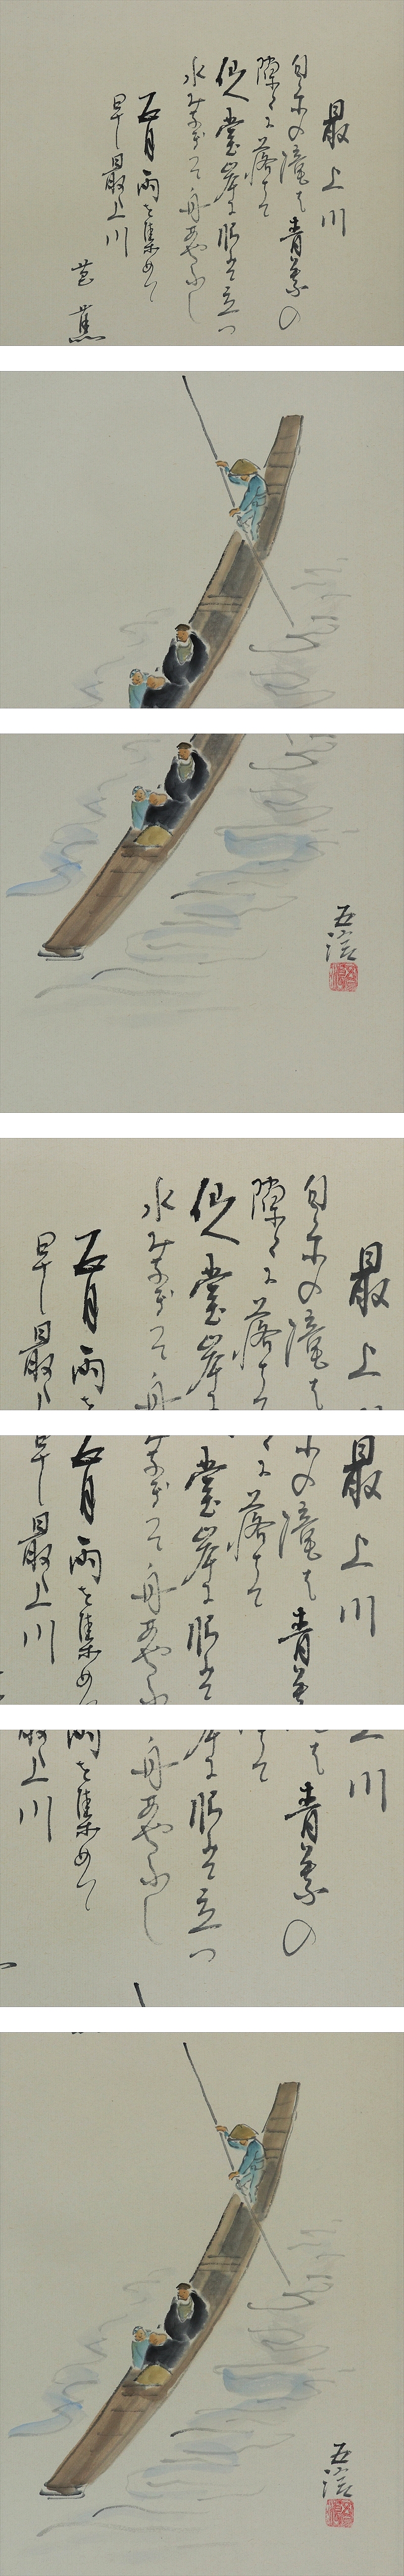 最上川
白糸の瀧は青葉の
隙々に落ちて
仙人堂岸に臨て立つ
水みなぎつて舟あやふし
五月雨を集めて
早し最上川
芭蕉
最上
白糸の瀧は
隙々に落ちて
仙人堂岸に
水みなぎつて舟
五月雨を
早し最
最上川
糸の瀧は青葉
々に落ちて
堂岸に臨て
なぎつて舟あやふ
五月雨を集め
早し最上川
上川
は青葉の
て
岸に臨て立つ
舟あやふし
雨を集めて
最上川